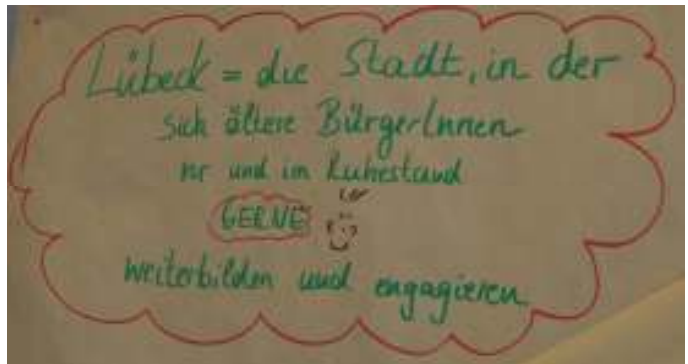 Lübeck = die Stadt, in der
sich ältere BürgerInnen
vor und im Ruhestand
GERNE
weiterbilden und engagieren